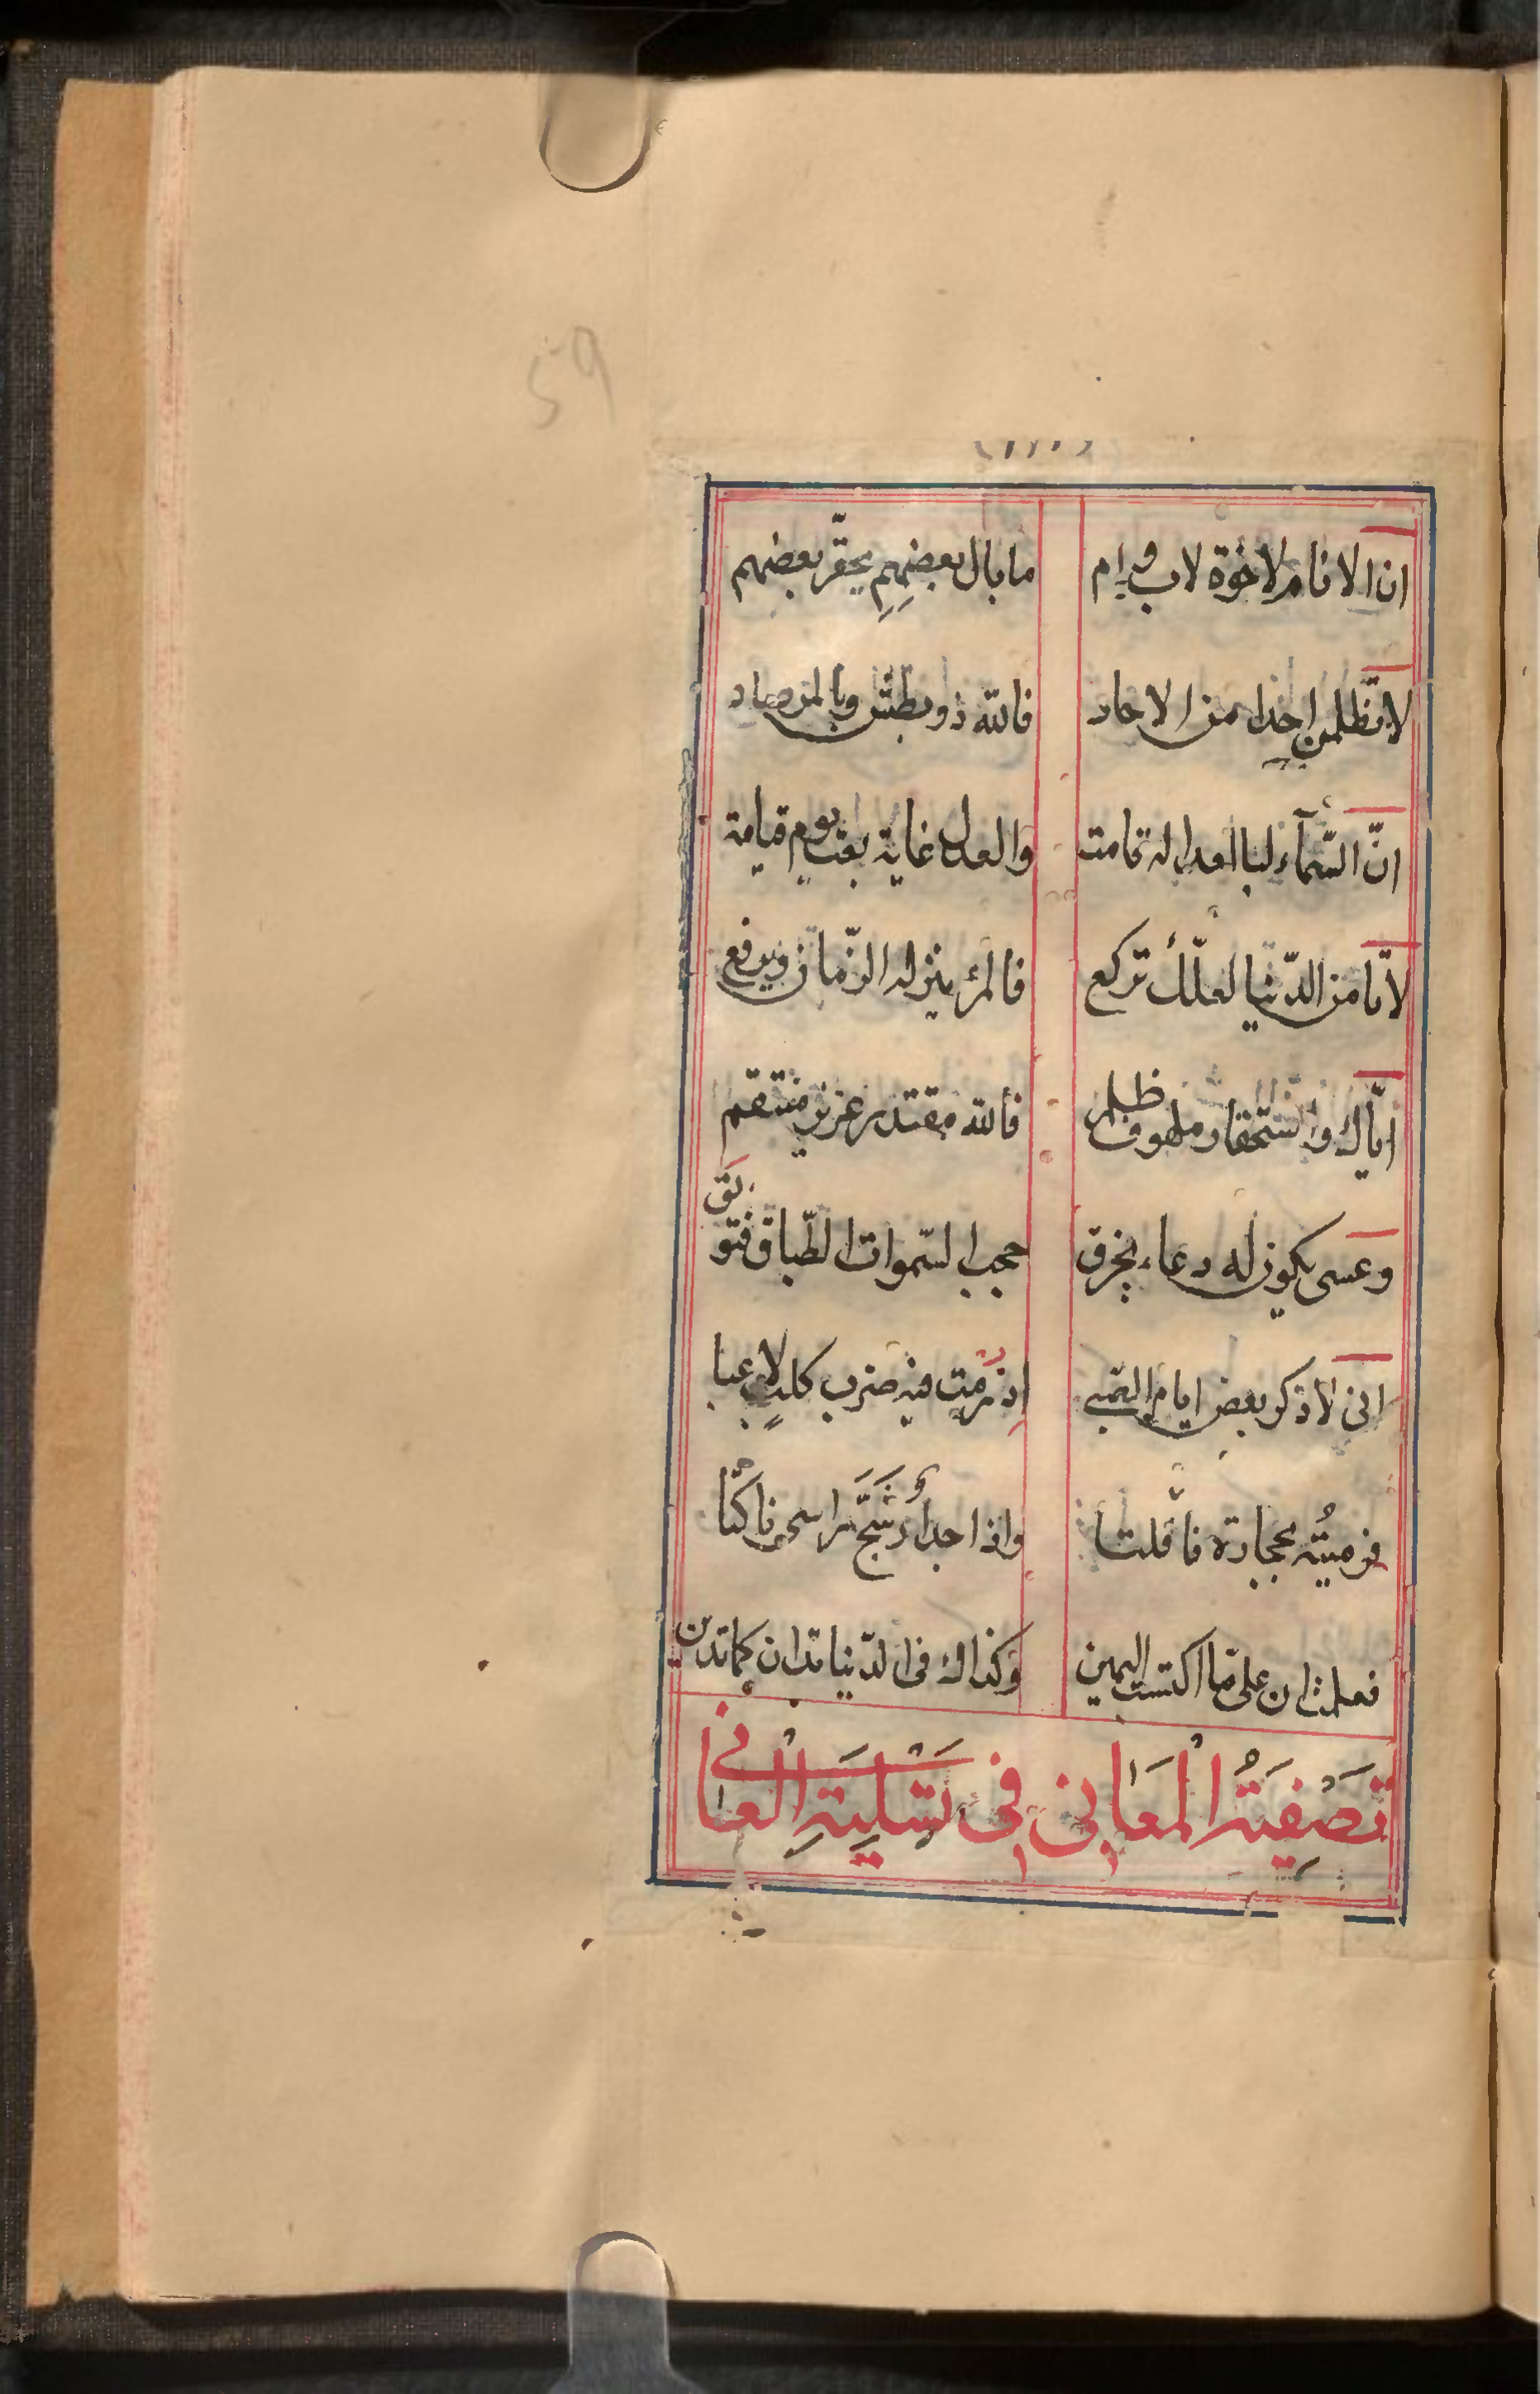 59
ان الانام لاخوة لاب وام ما بال بعضهم يحقّر بعضهم
لا تظلمن احدا من الاحاد فالله ذو بطش وبالمرصاد
انّ السّمآء لبالعدالة قامت والعدل غاية بعث يوم قيامة
لا تأمن الدّنيا لعلّك تركع فالمرء ينزله الزّمان ويرفع
ايّاك واستحقار ملهوف ظلم فالله مقتدر عزيز منتقم
وعسى يكون له دعاء يخرق حجب السّموات الطّباق فتوبق
انى لاذكر بعض ايام الصّبى اذ رمت فيه ضرب كلب لاعبا
فرميته بحجارة فاقلتا واذا جدار شجّ راسى ناكتا
فعلمت ان على ما اكتسب اليمين وكذاك فى الدّنيا تدان كما تدين
تَصْفِيَةُ الْمَعَانِى فِى تَسْلِيَةِ الْعَانِى